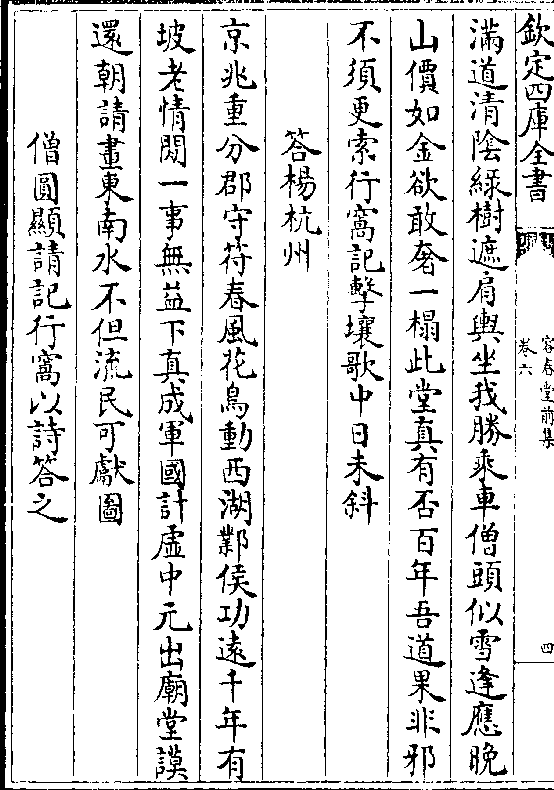 欽定四庫全書
容春堂前集
卷六
四
滿道清陰綠樹遮肩輿坐我勝乘車僧頭似雪逢應晚
山價如金欲敢奢一榻此堂真有否百年吾道果非邪
不須更索行窩記擊壤歌中日未斜
答楊杭州
京兆重分郡守符春風花鳥動西湖鄴侯功遠千年有
坡老情閒一事無益下真成軍國計虛中元出廟堂謨
還朝請畫東南水不但流民可獻圖
僧圓顯請記行窩以詩答之